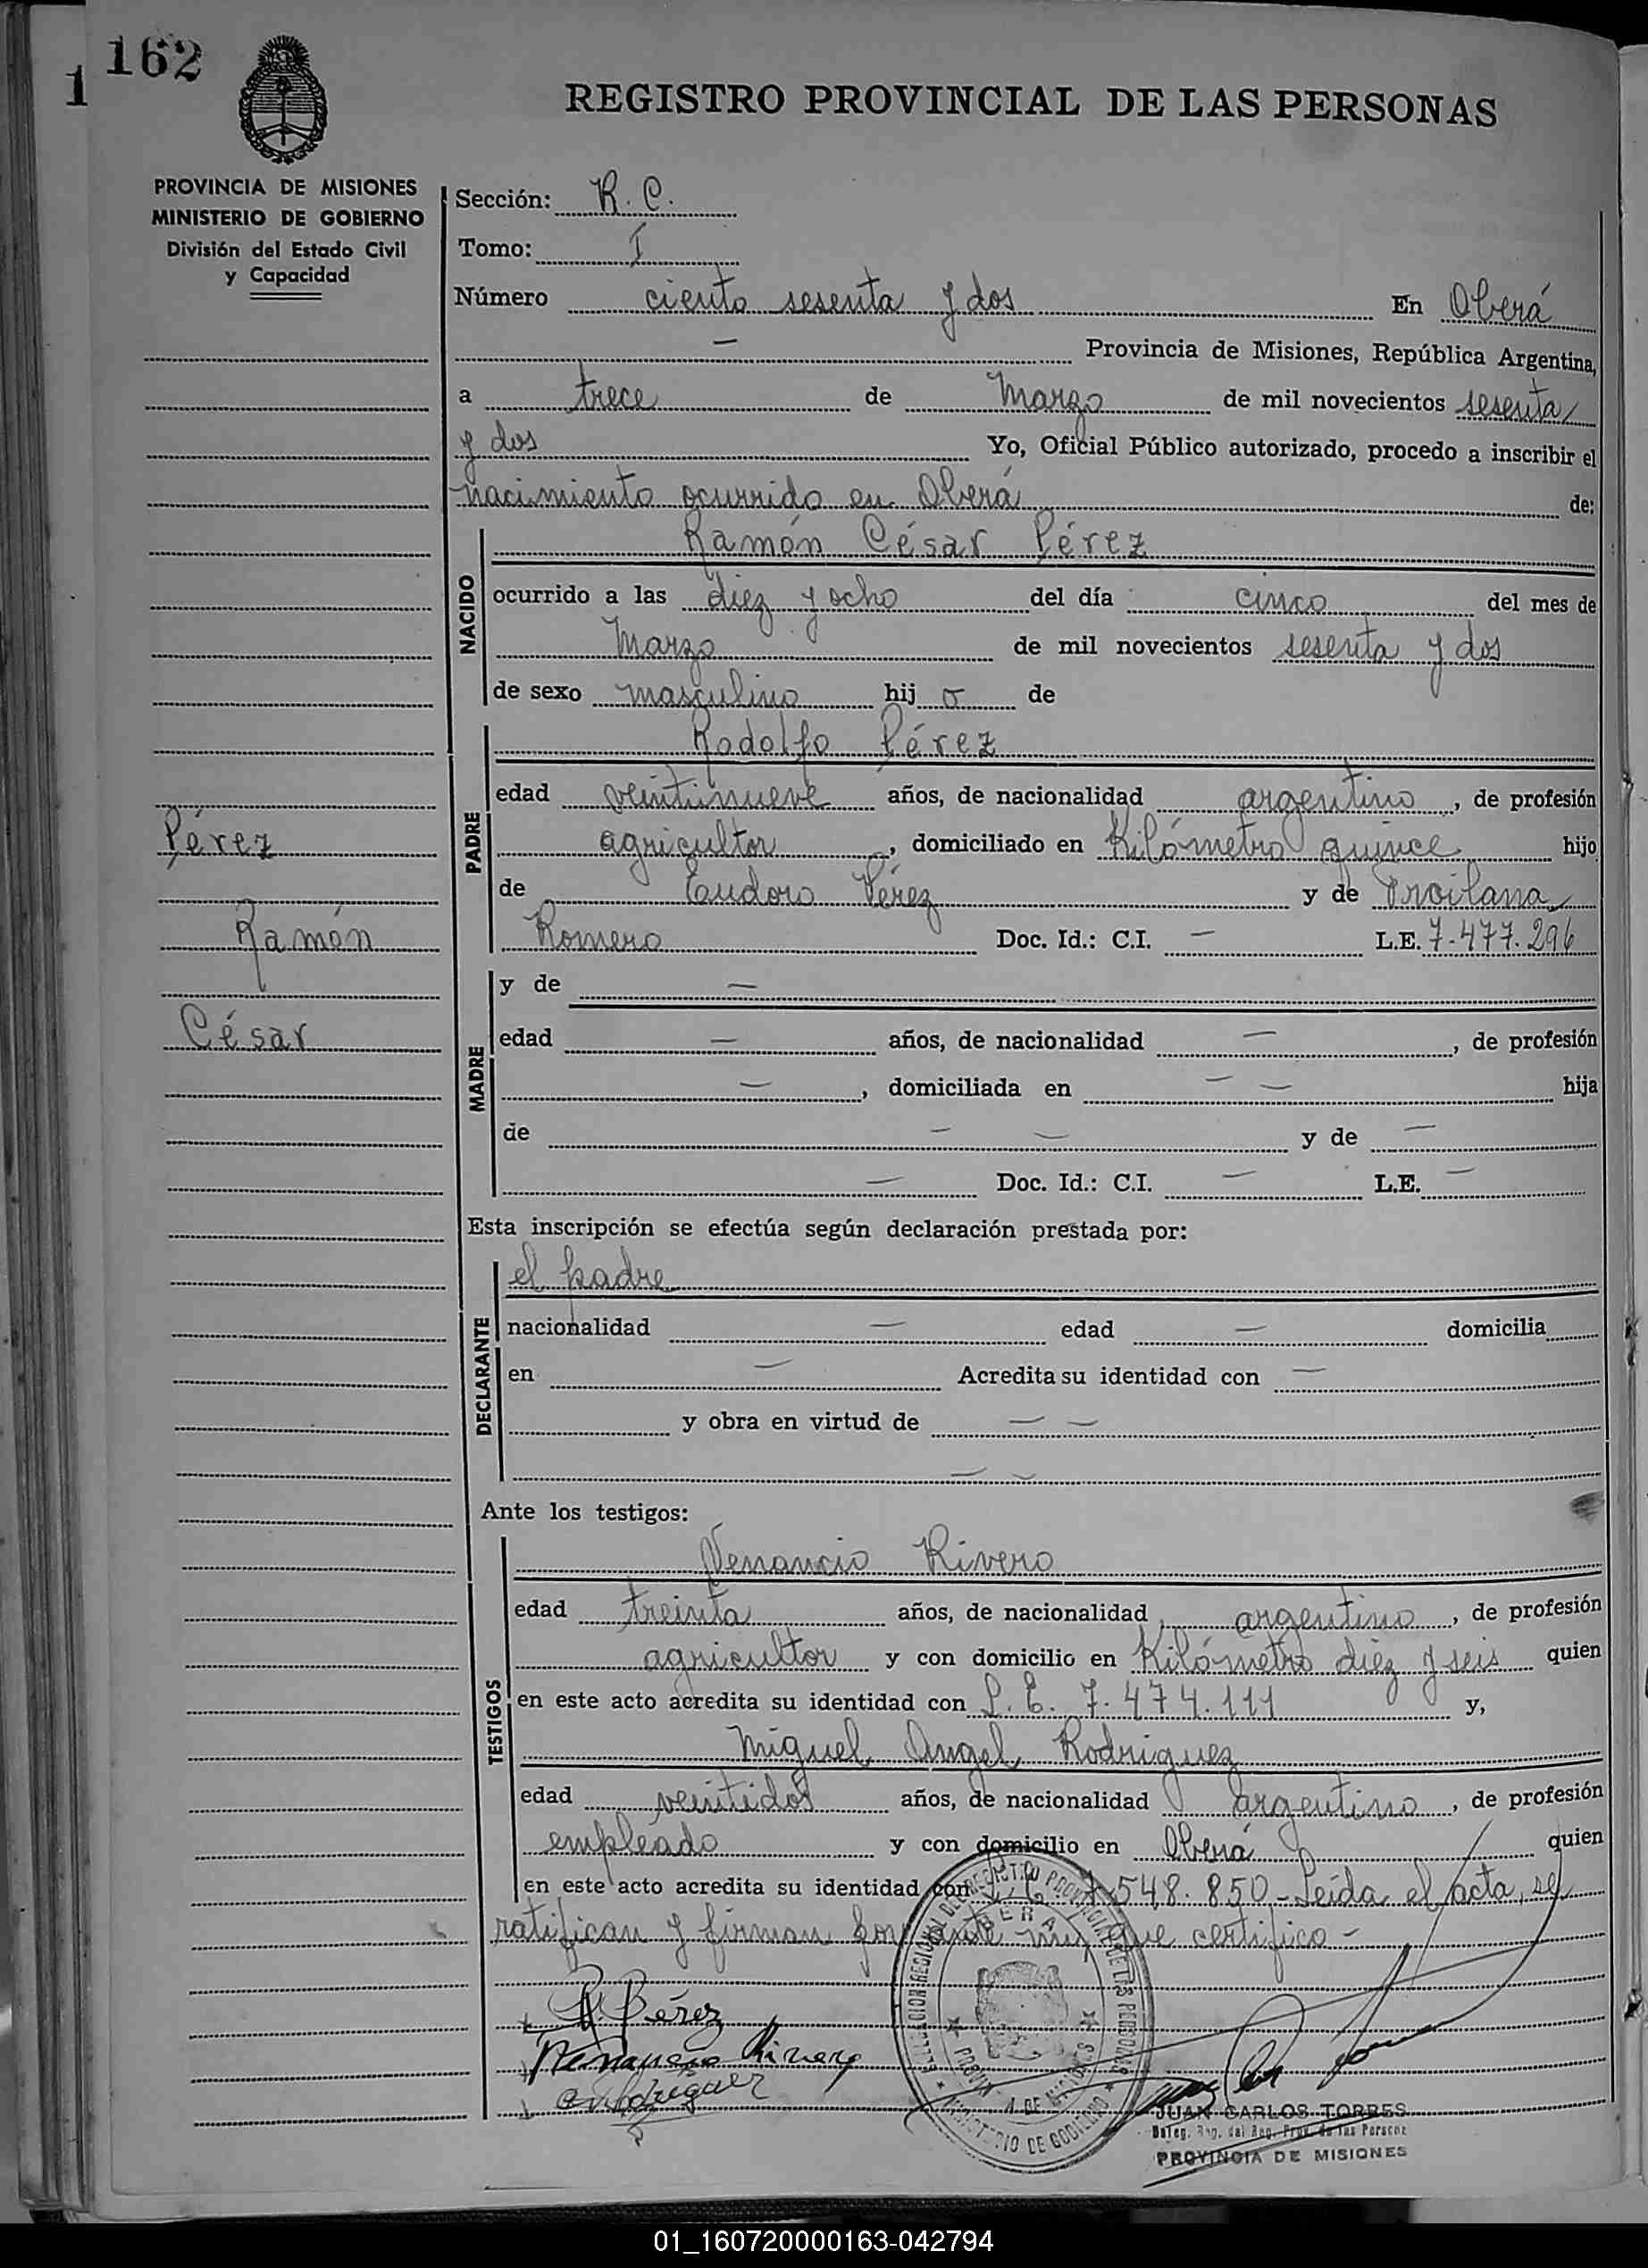 162
1
REGISTRO PROVINCIAL DE LAS PERSONAS
PROVINCIA DE MISIONES
MINISTERIO DE GOBIERNO
División del Estado Civil
y Capacidad
Sección: R. C.
Tomo: I
Número ciento sesenta y dos En Oberá
— Provincia de Misiones, República Argentina,
a trece de Marzo de mil novecientos sesenta
y dos Yo, Oficial Público autorizado, procedo a inscribir el
nacimiento ocurrido en Oberá de:
NACIDO
Ramón César Pérez
ocurrido a las diez y ocho del día cinco del mes de
Marzo de mil novecientos sesenta y dos
de sexo masculino hij o de
PADRE
Rodolfo Pérez
edad veintinueve años, de nacionalidad argentino, de profesión
agricultor, domiciliado en Kilómetro quince hijo
de Eudoro Pérez y de Troilana
Romero Doc. Id.: C.I. — L.E. 7.477.296
Pérez
Ramón
César
MADRE
y de —
edad — años, de nacionalidad —, de profesión
—, domiciliada en — — hija
de — — y de —
— Doc. Id.: C.I. — L.E. —
Esta inscripción se efectúa según declaración prestada por:
DECLARANTE
el padre
nacionalidad — edad — domicilia
en — Acredita su identidad con —
y obra en virtud de — —
— —
Ante los testigos:
TESTIGOS
Venancio Rivero
edad treinta años, de nacionalidad argentino, de profesión
agricultor y con domicilio en Kilómetro diez y seis quien
en este acto acredita su identidad con L. E. 7.474.111 y,
Miguel Angel Rodriguez
edad veintidos años, de nacionalidad argentino, de profesión
empleado y con domicilio en Oberá quien
en este acto acredita su identidad con 548.850 - Leída el acta, se
ratifican y firman por ante mi, que certifico -
R. Pérez
Venancio Rivero
JUAN CARLOS TORRES
Deleg. Reg. del Reg. Prov. de las Personas
PROVINCIA DE MISIONES
DELEGACION REGIONAL DEL REGISTRO PROVINCIAL DE LAS PERSONAS
OBERA
PROVINCIA DE MISIONES
MINISTERIO DE GOBIERNO
01_160720000163-042794